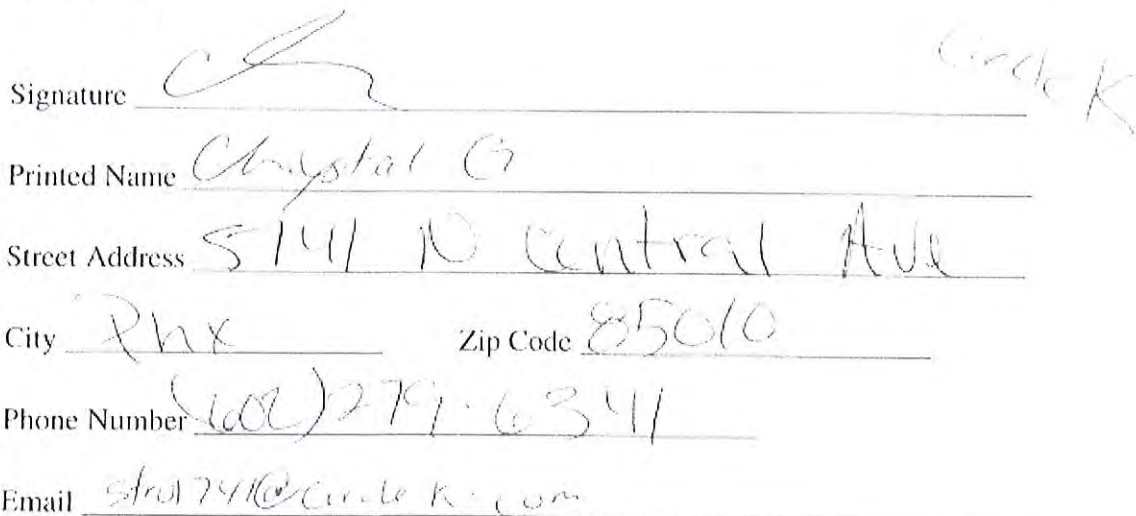 Circle K
Signature
Printed Name Chrystal G
Street Address 5141 N Central Ave
City Phx Zip Code 85010
Phone Number (602) 279-6341
Email str01741@circlek.com